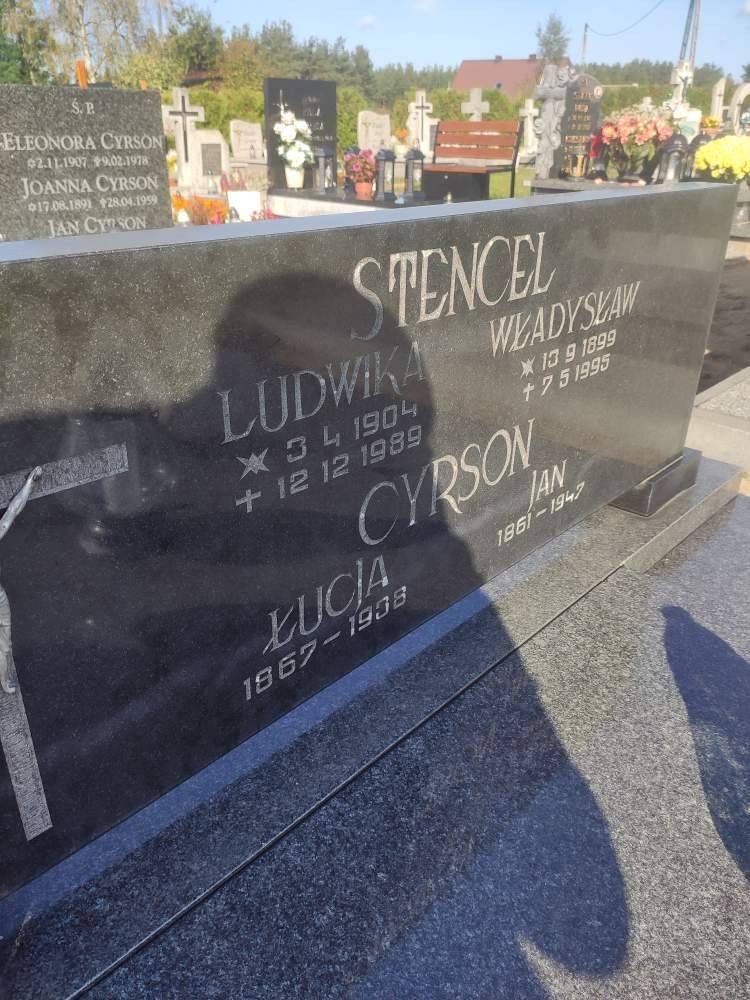 Ś.P.
ELEONORA CYRSON
*2.11.1907 ✝9.02.1978
JOANNA CYRSON
*17.08.1891 ✝28.04.1959
JAN CYRSON
STENCEL
LUDWIKA
* 3 4 1904
✝ 12 12 1989
WŁADYSŁAW
* 13 9 1899
✝ 7 5 1995
CYRSON
ŁUCJA
1867 – 1938
JAN
1861 – 1947